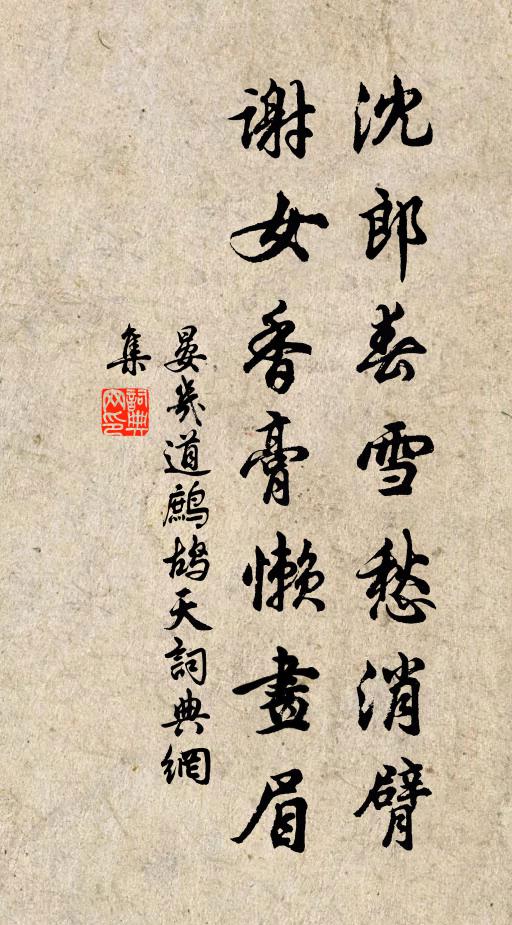 沈郎春雪愁消臂
谢女香膏懒畫眉
晏幾道鷓鴣天詞典網
集
詞典网印